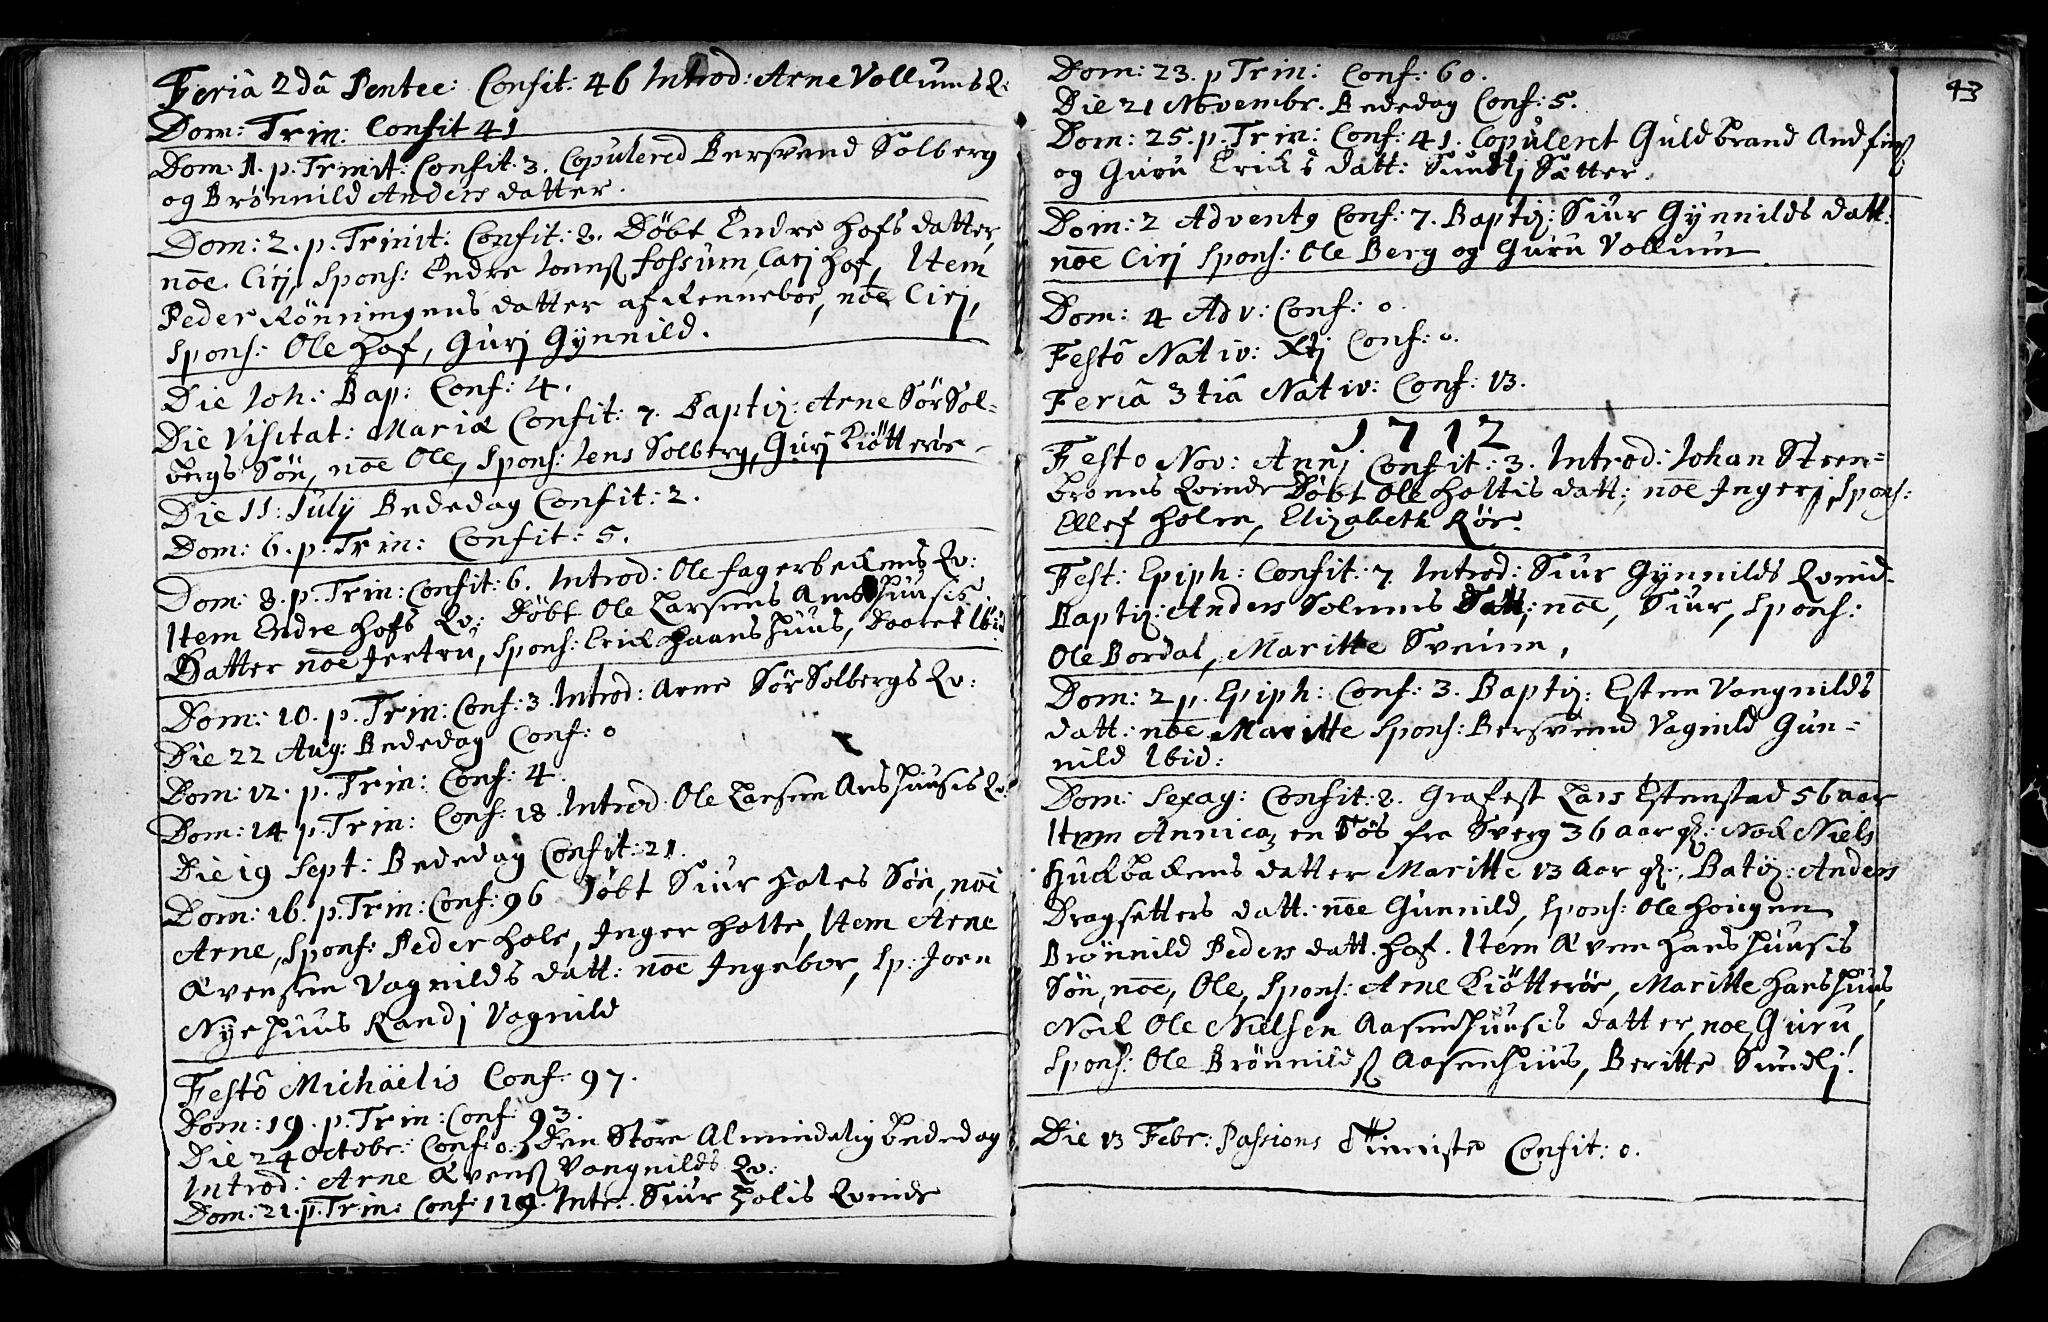 Feriâ 2dâ Pentec: Confit: 46 Introd: Arne Vollums Q:
Dom: Trin: Confit 41
Dom: 1. p. Trinit: Confit: 3. Copulered Bersvend Solberg
og Brønnild Anders datter.
Dom: 2. p. Trinit: Confit: 8. Döbt Endre Hofs datter,
noe Cirj, Spons: Endre Jonsß fossum, Carj Hof, Item
Peder Rönningens datter af Renneboe, noe Cirj,
Spons: Ole Hof, Gurj Gynnild.
Die Joh: Bap: Conf: 4.
Die Visitat: Mariæ Confit: 7. Baptiz: Arne Sör Sol=
bergs Sön, noe Ole, Spons: Jens Solberg, Gurj Kiötteröe
Die 11: July Bededag Confit: 2.
Dom: 6. p. Trin: Confit: 5.
Dom: 8. p. Trin: Confit: 6. Introd: Ole fagerbekens Qv:
Item Endre Hofs Qv: Döbt Ole Larsens Huusis
Datter noe Jertru, Spons: Erick Haans Huus, ibid
Dom: 10. p. Trin: Conf: 3. Introd: Arne Sör Solbergs Qv:
Die 22 Aug: Bededag Conf: 0
Dom: 12. p. Trin: Conf: 4.
Dom: 14 p. Trin: Conf: 18. Introd. Ole Larsen Aas Huusis Qv:
Die 19 Sept: Bededag Confit: 21.
Dom: 16. p. Trin: Conf: 96 Döbt Siur Holes Sön, noe
Arne, Spons: Peder Hole, Inger Holte, Item Arne
Ævensen Vagnilds datt: noe Ingebor, Sp: Joen
Nye Huus Randj Vagnild
Festô Michäelis Conf: 97.
Dom: 19. p. Trin: Conf: 93.
Die 24 Octobr: Conf: 0. Den Store Almindelig Bededag
Introd: Arne Ævensß Vangnilds Qv:
Dom: 21. p. Trin: Conf: 119. Intr: Siur Holis Qvinde
43
Dom: 23. p Trin: Conf: 60.
Die 21 Novembr. Bededag Conf: 5.
Dom: 25. p. Trin: Conf: 41. Copuleret Guldbrand Andfinß
og Guru Ericks datt: Sundlj Sætter.
Dom: 2 Advent9 Conf: 7. Baptiz: Siur Gynnilds datt:
noe Cirj Spons: Ole Berg og Guru Vollum
Dom: 4 Adv: Conf: 0.
Festô Nativ: Xtj Conf: 0.
Feriâ 3 tiâ Nativ: Conf: 13.
1712
Festo Nov: Annj Confit: 3. Introd: Johan Steen=
brenns Qvinde Döbt Ole Holtis datt: noe Ingerj, Spons:
Ellef Holm, Elizabeth Rör.
Fest: Epiph: Confit: 7. Introd: Siur Gynnilds Qvind.
Baptiz: Anders Solems noe, Siur, Spons:
Ole Bordal, Maritte Svein,
Dom: 2 p. Epiph: Conf: 3. Baptiz: Esten Vangnilds
datt: noe Maritte Spons: Bersvend Vagnild Gun=
nild Ibid:
Dom: Sexag: Confit: 8. Grafest Lars Estenstad 56 aar
Item Annica, en Tös fra Sverg 36 aar gl: Nok Niels
Huckbackens datter Maritte 13 Aar gl:, Batiz: Anders
Dragsetters datt: noe Gunnild, Spons: Ole Hougen
Brönnild Peders datt. Hof. Item Æven Hans Huusis
Sön, noe, Ole, Spons: Arne Kiötteröe, Maritte Hans Huus,
Nock Ole Nielsen Aasen Huusis datter, noe, Guru,
Spons: Ole Brönnildsß Aasenhuus, Beritte Sundlj.
Die 13 Febr: Passions Confit: 0.